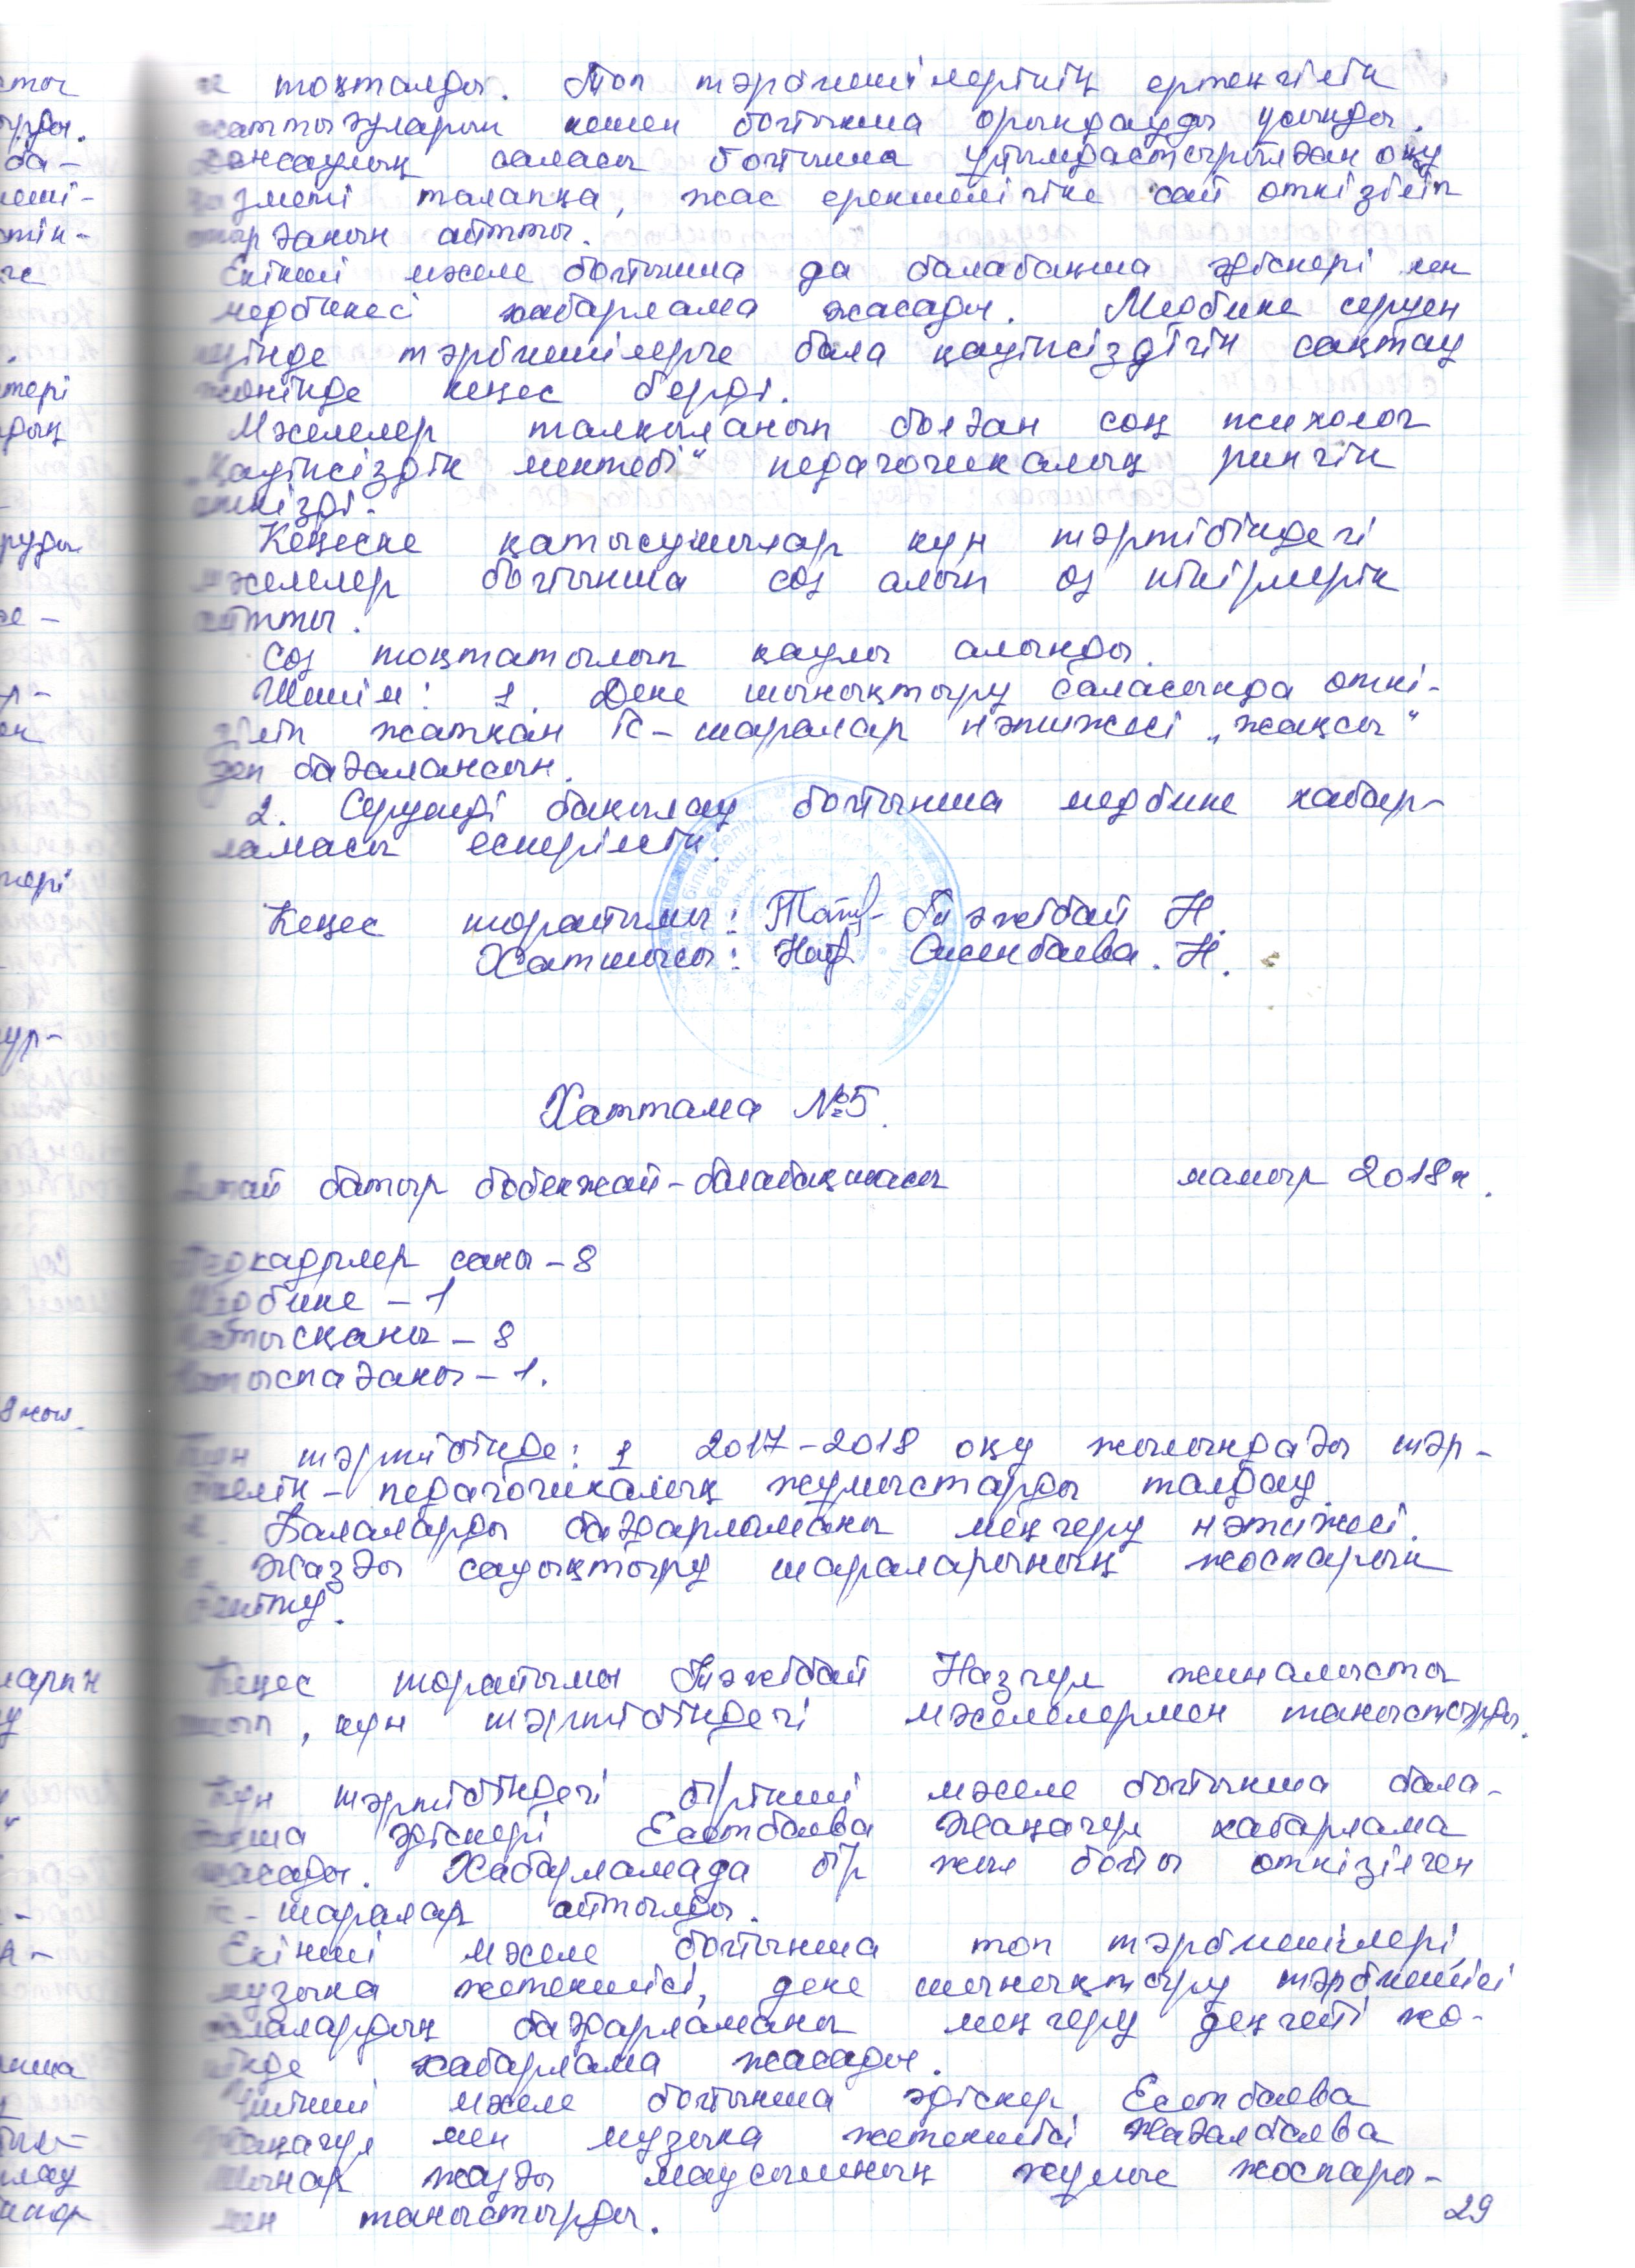 тоқталды. Топ тәрбиешілерінің ертеңгілік
жаттығуларын кешен бойынша орындауды ұсынды.
Денсаулық саласы бойынша ұйымдастырылған оқу
қызметі талапқа, жас ерекшелігіне сай өткізіліп
отырғанын айтты.
Екінші мәселе бойынша да балабақша әдіскері мен
медбикесі хабарлама жасады. Медбике серуен
кезінде тәрбиешілерге бала қауіпсіздігін сақтау
жөнінде кеңес берді.
Мәселелер талқыланып болған соң психолог
„Қауіпсіздік мектебі“ педагогикалық рингін
өткізді.
Кеңеске қатысушылар күн тәртібіндегі
мәселелер бойынша сөз алып өз пікірлерін
айтты.
Сөз тоқтатылып қаулы алынды.
Шешім: 1. Дене шынықтыру саласында өткі-
зіліп жатқан іс-шаралар нәтижесі „жақсы“
деп бағалансын.
2. Серуенді бақылау бойынша медбике хабар-
ламасы ескерілсін.
Кеңес төрайымы: Тәжібай Н.
Хатшысы: Н.
Хаттама №5.
батыр бөбекжай-балабақшасы мамыр 2018ж.
Педкадрлер саны - 8
Медбике - 1
Қатысқаны - 8
Қатыспағаны - 1.
Күн тәртібінде: 1 2017-2018 оқу жылындағы тәр-
биелік-педагогикалық жұмыстарды талдау.
2. Балаларды бағдарламаны меңгеру нәтижесі.
3. Жазғы сауықтыру шараларының жоспарын
бекіту.
Кеңес төрайымы Тәжібай Назгүл жиналысты
ашып, күн тәртібіндегі мәселелермен таныстырды.
Күн тәртібіндегі бірінші мәселе бойынша бала-
бақша әдіскері Есетбаева Жаңагүл хабарлама
жасады. Хабарламада бір жыл бойы өткізілген
іс-шаралар айтылды.
Екінші мәселе бойынша топ тәрбиешілері,
музыка жетекшісі, дене шынықтыру тәрбиешісі
балалардың бағдарламаны меңгеру деңгейі жө-
нінде хабарлама жасады.
Үшінші мәселе бойынша әдіскер Есетбаева
Жаңагүл мен музыка жетекшісі Жағалбаева
Шынар жазғы маусымның жұмыс жоспары-
мен таныстырды.
29